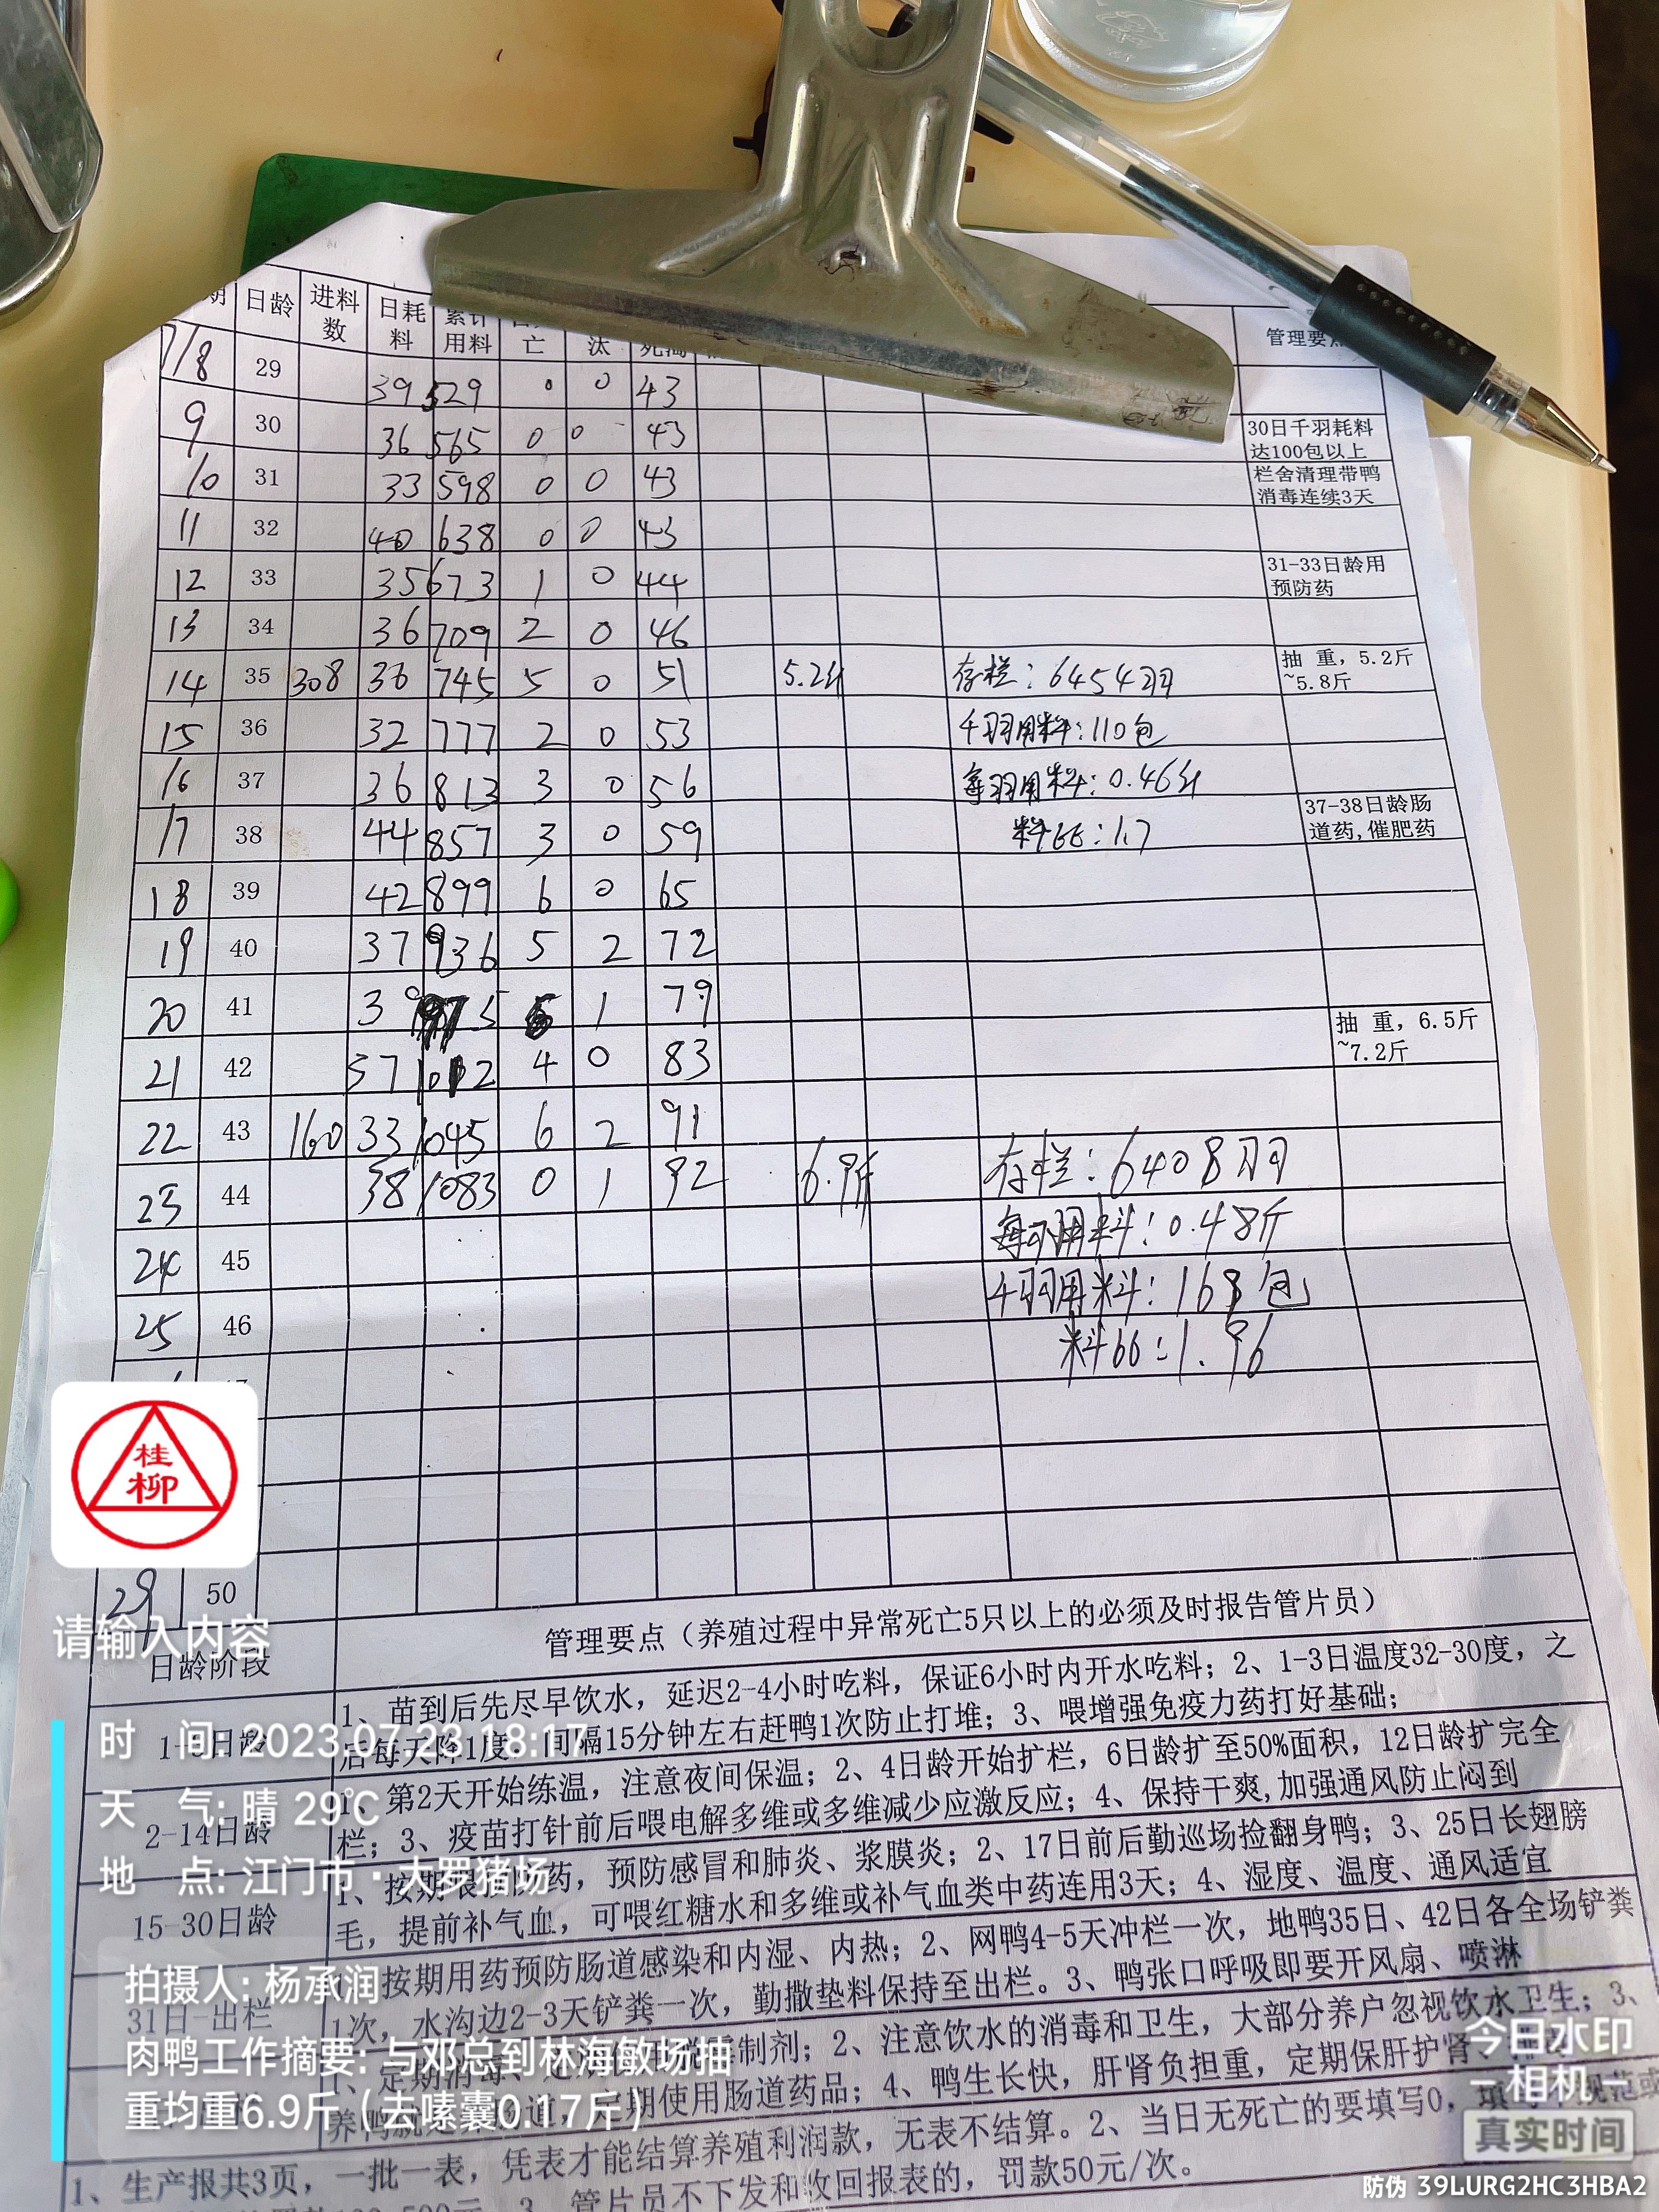 期 日龄 进料数 日耗料 累计用料 亡 汰 死淘 管理要点
7/8 29 39 529 0 0 43
9 30 36 565 0 0 43 30日千羽耗料达100包以上
10 31 33 598 0 0 43 栏舍清理带鸭消毒连续3天
11 32 40 638 0 0 43
12 33 35 673 1 0 44 31-33日龄用预防药
13 34 36 709 2 0 46
14 35 308 36 745 5 0 51 5.2斤 存栏:6454羽 抽 重，5.2斤~5.8斤
15 36 32 777 2 0 53 千羽用料:110包
16 37 36 813 3 0 56 每羽用料:0.46斤
17 38 44 857 3 0 59 料比:1.7 37-38日龄肠道药,催肥药
18 39 42 899 6 0 65
19 40 37 936 5 2 72
20 41 39 975 6 1 79
21 42 37 1012 4 0 83 抽 重，6.5斤~7.2斤
22 43 160 33 1045 6 2 91
23 44 38 1083 0 1 92 6.9斤 存栏:6408羽
24 45 每羽用料:0.48斤
25 46 千羽用料:168包
料比:1.96
29 50
桂柳
请输入内容
日龄阶段 管理要点（养殖过程中异常死亡5只以上的必须及时报告管片员）
1、苗到后先尽早饮水，延迟2-4小时吃料，保证6小时内开水吃料；2、1-3日温度32-30度，之
后每天降1度，间隔15分钟左右赶鸭1次防止打堆；3、喂增强免疫力药打好基础；
2-14日龄 1、第2天开始练温，注意夜间保温；2、4日龄开始扩栏，6日龄扩至50%面积，12日龄扩完全
栏；3、疫苗打针前后喂电解多维或多维减少应激反应；4、保持干爽,加强通风防止闷到
15-30日龄 1、按期喂预防药，预防感冒和肺炎、浆膜炎；2、17日前后勤巡场捡翻身鸭；3、25日长翅膀
毛，提前补气血，可喂红糖水和多维或补气血类中药连用3天；4、湿度、温度、通风适宜
31日-出栏 1、按期用药预防肠道感染和内湿、内热；2、网鸭4-5天冲栏一次，地鸭35日、42日各全场铲粪
1次，水沟边2-3天铲粪一次，勤撒垫料保持至出栏。3、鸭张口呼吸即要开风扇、喷淋
制剂；2、注意饮水的消毒和卫生，大部分养户忽视饮水卫生；3、
期使用肠道药品；4、鸭生长快，肝肾负担重，定期保肝护肾
1、生产报共3页，一批一表，凭表才能结算养殖利润款，无表不结算。2、当日无死亡的要填写0，
3、管片员不下发和收回报表的，罚款50元/次。
时 间: 2023.07.23 18:17
天 气: 晴 29℃
地 点: 江门市·大罗猪场
拍摄人: 杨承润
肉鸭工作摘要: 与邓总到林海敏场抽
重均重6.9斤（去嗉囊0.17斤）
今日水印
相机
真实时间
防伪 39LURG2HC3HBA2